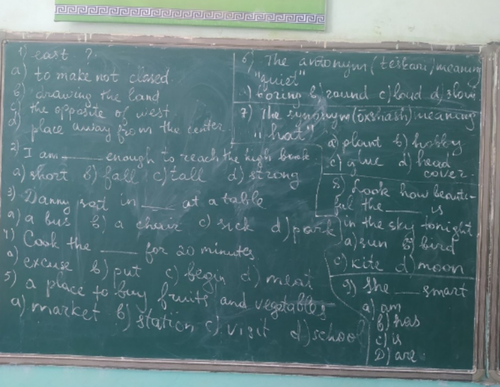 1) east ?
a) to make not closed
b) drawing the land
c) the opposite of west
d) place away from the center
2) I am ____ enough to reach the high book
a) short b) fall c) tall d) strong
3) Danny sat in ____ at a table
a) a bus b) a chair c) sick d) park
4) Cook the ____ for 20 minutes
a) excuse b) put c) begin d) meat
5) a place to buy fruits and vegetables
a) market b) station c) visit d) school
6) The antonym (teskari) meaning
"quiet"
a) boring b) round c) loud d) slow
7) The synonym (o'xshash) meaning
"hat"
a) plant b) hobby
c) glue d) head
cover
8) Look how beauti-
ful the ____ is
in the sky tonight
a) sun b) bird
c) kite d) moon
9) She ____ smart
a) am
b) has
c) is
D) are